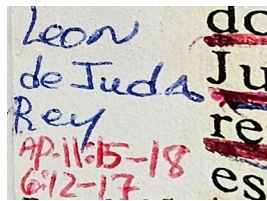 Leon
de Juda
Rey
AP.11:15-18
6:12-17
do
Ju
re
es